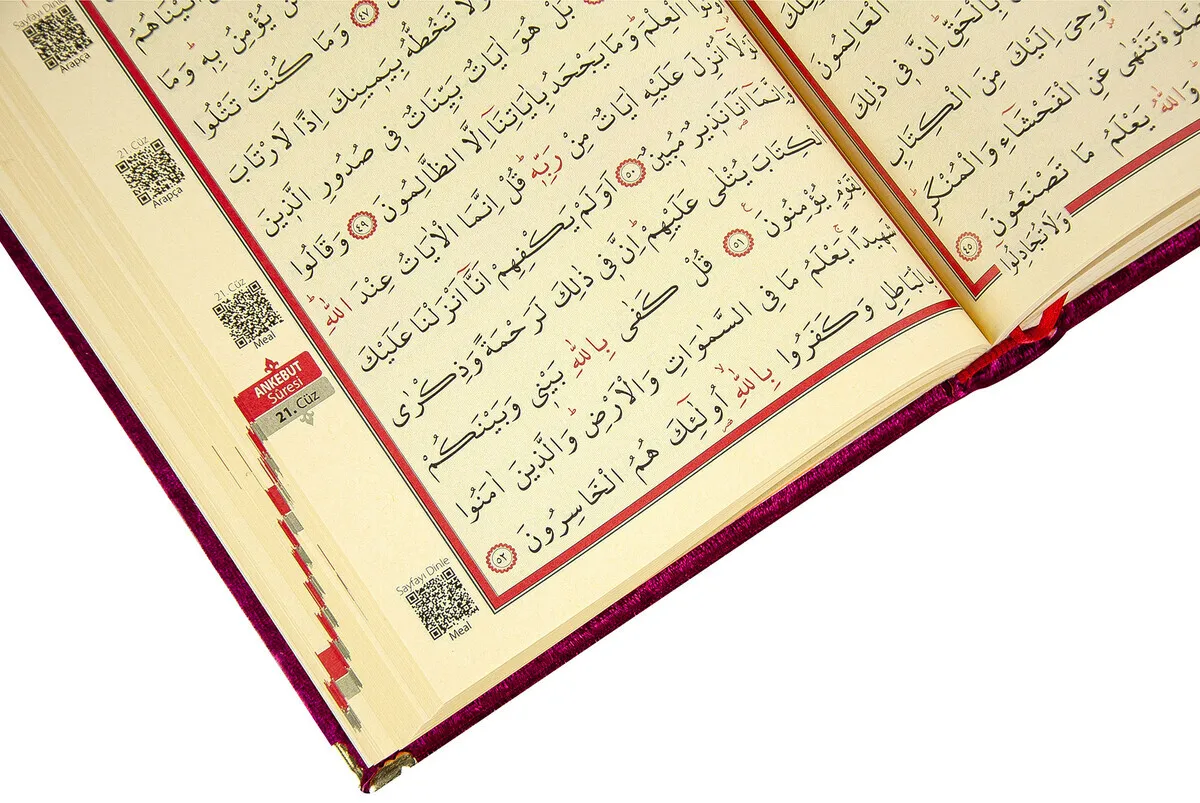 ذٰلِكَ
الْعَالِمُونَ
بِالْحَقِّ اِنَّ فِى ذٰلِكَ
اُو۫حِىَ اِلَيْكَ مِنَ الْكِتَابِ
تَنْهٰى عَنِ الْفَحْشَٓاءِ وَالْمُنْكَرِ
وَاللّٰهُ يَعْلَمُ مَا تَصْنَعُونَ ٤٥
وَلَا تُجَادِلُوا
اٰتَيْنَاهُمُ
مَنْ يُؤْمِنُ بِهٖ وَمَا
٤٧ وَمَا كُنْتَ تَتْلُوا
وَلَا تَخُطُّهُ بِيَمِينِكَ اِذًا لَارْتَابَ
بَلْ هُوَ اٰيَاتٌ بَيِّنَاتٌ فِى صُدُورِ الَّذِينَ
الْعِلْمَ وَمَا يَجْحَدُ بِاٰيَاتِنَٓا اِلَّا الظَّالِمُونَ ٤٩ وَقَالُوا
اُنْزِلَ عَلَيْهِ اٰيَاتٌ مِنْ رَبِّهٖ قُلْ اِنَّمَا الْاٰيَاتُ عِنْدَ اللّٰهِ
وَاِنَّمَٓا اَنَا نَذِيرٌ مُبِينٌ ٥٠ اَوَلَمْ يَكْفِهِمْ اَنَّٓا اَنْزَلْنَا عَلَيْكَ
الْكِتَابَ يُتْلٰى عَلَيْهِمْ اِنَّ فِى ذٰلِكَ لَرَحْمَةً وَذِكْرٰى
لِقَوْمٍ يُؤْمِنُونَ ٥١ قُلْ كَفٰى بِاللّٰهِ بَيْنِى وَبَيْنَكُمْ
شَهِيدًا يَعْلَمُ مَا فِى السَّمٰوَاتِ وَالْاَرْضِ وَالَّذِينَ اٰمَنُوا
بِالْبَاطِلِ وَكَفَرُوا بِاللّٰهِ اُولٰٓئِكَ هُمُ الْخَاسِرُونَ ٥٢
Sayfayı Dinle
Arapça
21. Cüz
Arapça
21. Cüz
Meal
ANKEBUT
Sûresi
21. Cüz
Sayfayı Dinle
Meal